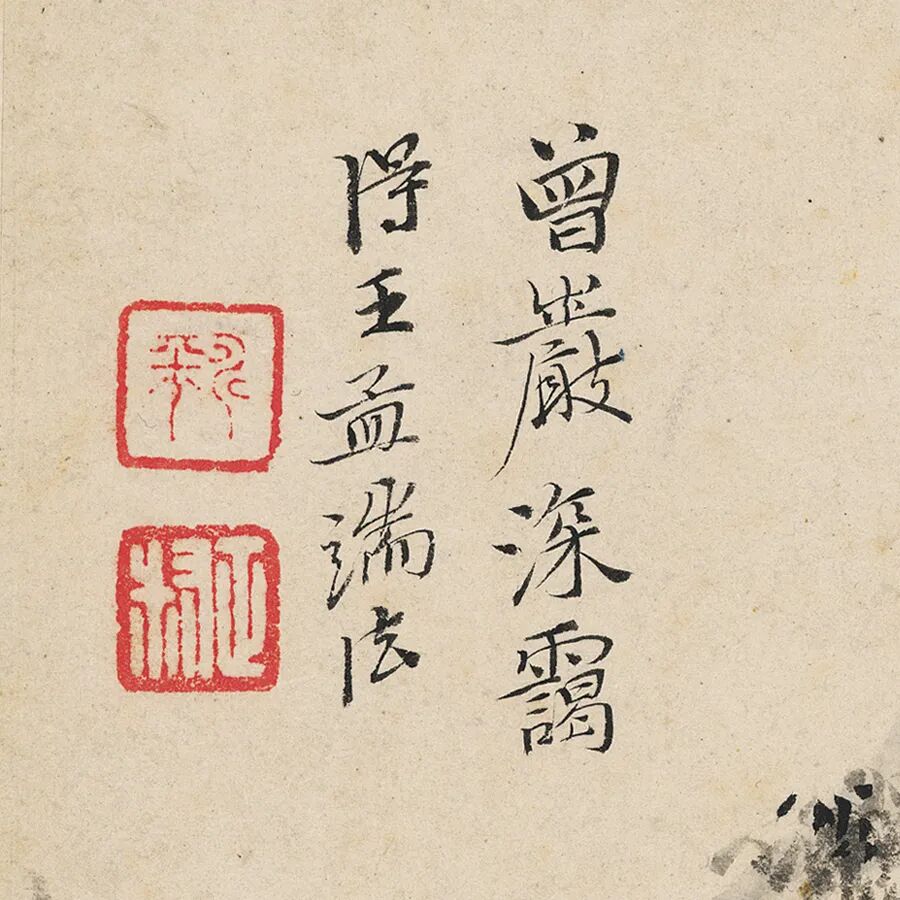 曾巖深靄
得王孟端法